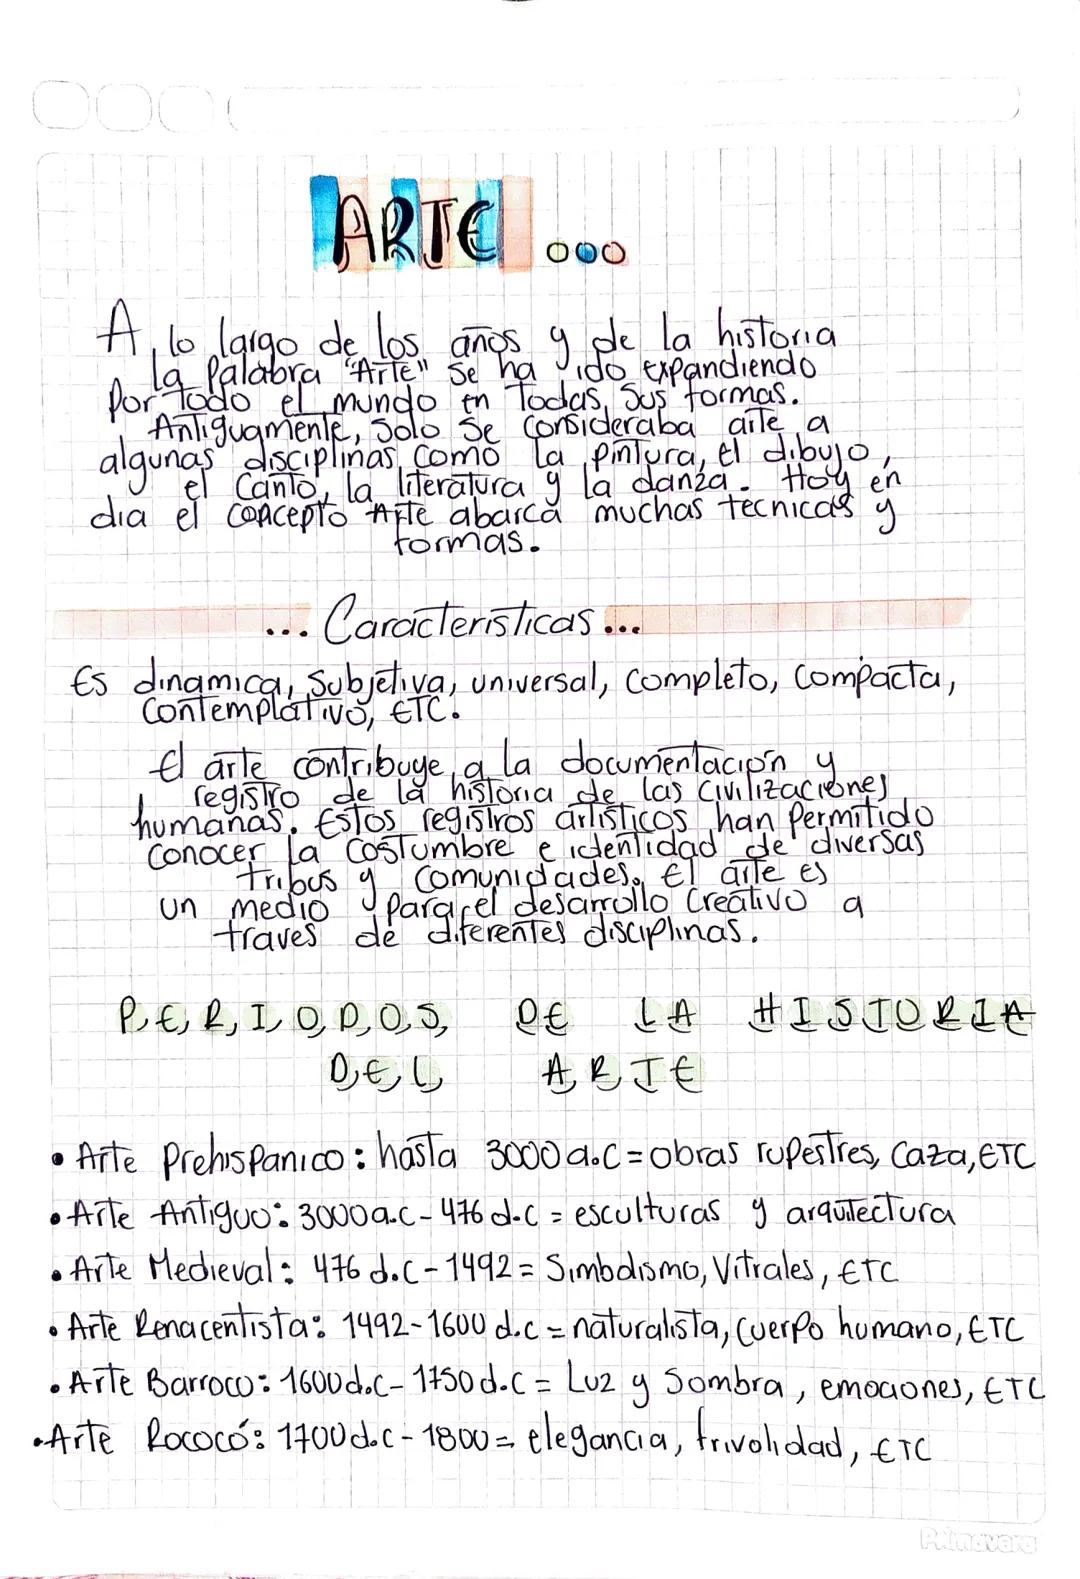 ARTE ...
A lo largo de los años y de la historia
la Palabra "Arte" se ha ido expandiendo
Por todo el mundo en Todas Sus formas.
Antiguamente, Solo Se consideraba arte a
algunas disciplinas como la pintura, el dibujo,
el Canto, la literatura y la danza. Hoy en
dia el concepto Arte abarca muchas tecnicas y
formas.
... Caracteristicas ...
Es dinamica, Subjetiva, universal, completo, compacta,
Contemplativo, ETC.
El arte contribuye a la documentación y
registro de la historia de las civilizaciones
humanas. Estos registros artisticos han Permitido
conocer la costumbre e identidad de diversas
tribus y comunidades. El arte es
un medio para el desarrollo Creativo a
traves de diferentes disciplinas.
PERIODOS DE LA HISTORIA
DEL ARTE
• Arte Prehispanico: hasta 3000 a.c = obras rupestres, Caza, ETC
• Arte Antiguo: 3000 a.c - 476 d.c = esculturas y arquitectura
• Arte Medieval: 476 d.c - 1492 = Simbolismo, Vitrales, ETC
• Arte Renacentista: 1492 - 1600 d.c = naturalista, Cuerpo humano, ETC
• Arte Barroco: 1600 d.c - 1750 d.c = Luz y Sombra, emociones, ETC
• Arte Rococó: 1700 d.c - 1800 = elegancia, frivolidad, ETC
Primavera